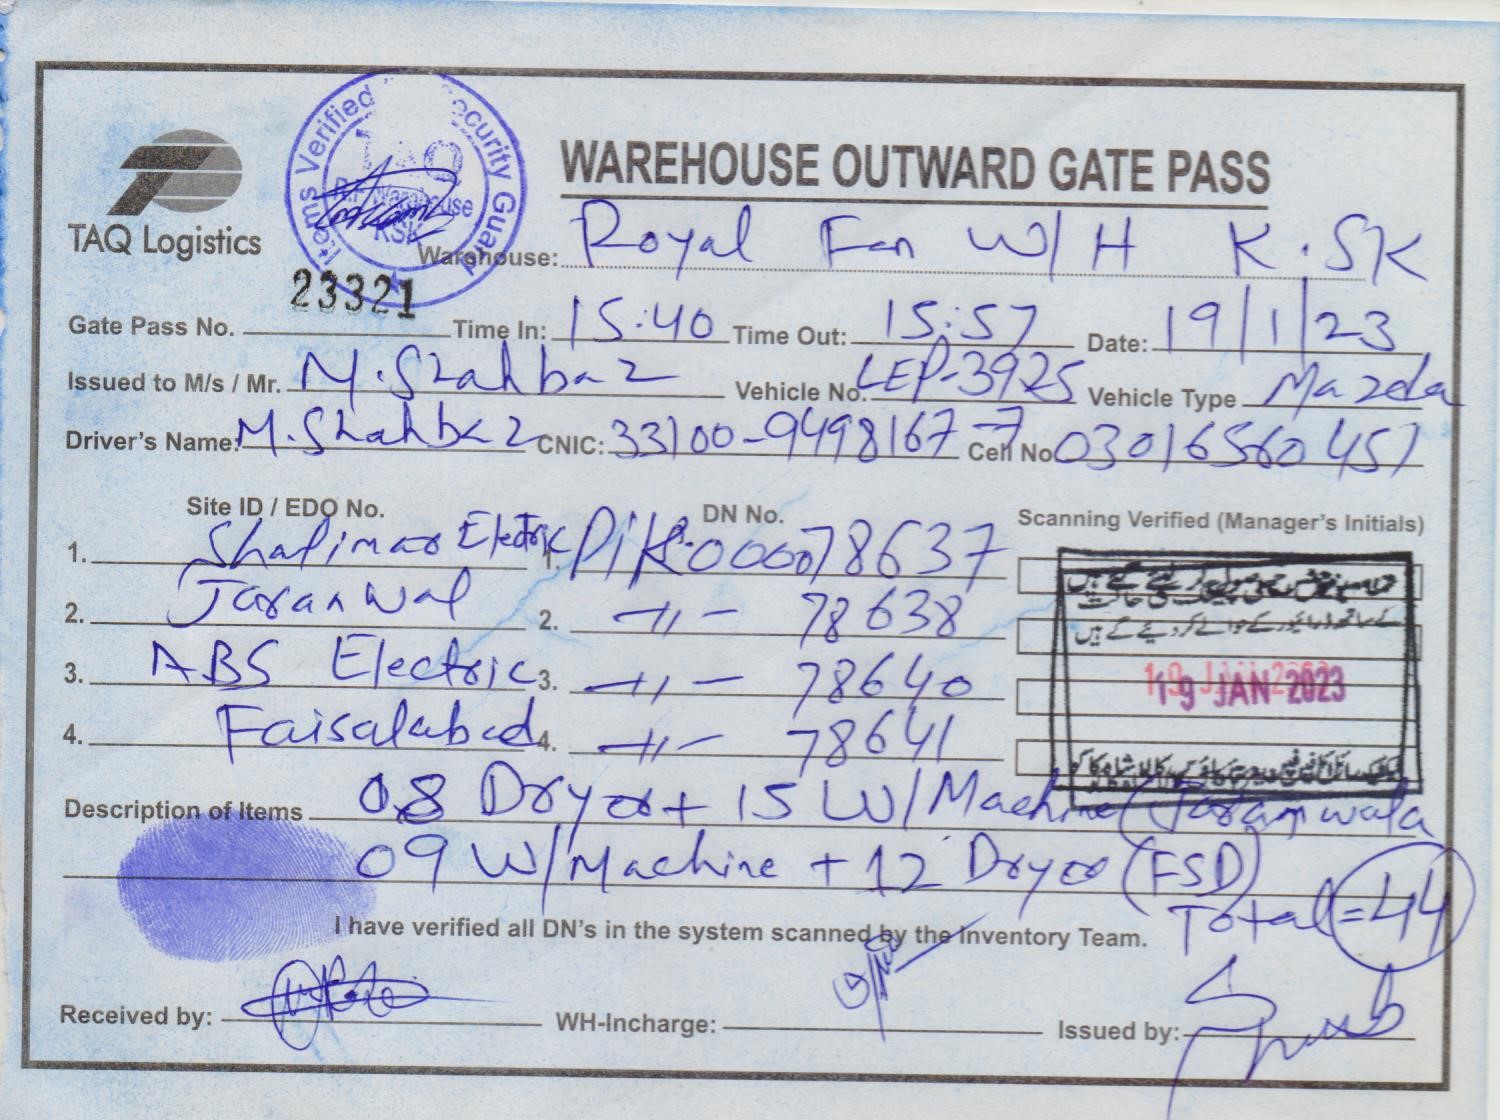 Items Verified Security Guard
TAQ
R.F Warehouse
KSK
TAQ Logistics
WAREHOUSE OUTWARD GATE PASS
Warehouse: Royal Fan W/H K.SK
23321
Gate Pass No. Time In: 15:40 Time Out: 15:57 Date: 19/1/23
Issued to M/s / Mr. M.Shahbaz Vehicle No. LEP-3925 Vehicle Type Mazda
Driver's Name: M.Shahbaz CNIC: 33100-9498167-7 Cell No 03016560451
Site ID / EDO No. DN No. Scanning Verified (Manager's Initials)
1. Shalimar Electric 1. 00078637
2. Jaranwal 2. -//- 78638
3. ABS Electric 3. -//- 78640
19 JAN 2023
4. Faisalabad 4. -//- 78641
Description of Items 08 Dryer + 15 W/Machine (Jaranwala
09 W/Machine + 12 Dryer (FSD)
Total = 44
I have verified all DN's in the system scanned by the Inventory Team.
Received by: WH-Incharge: Issued by: